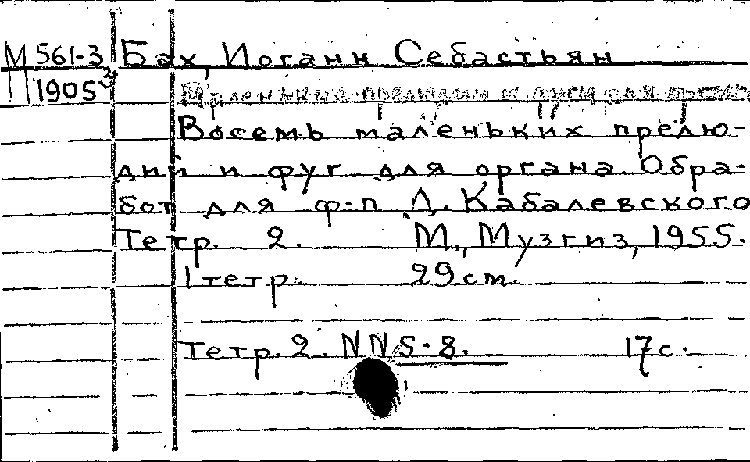 М561-3 Бах, Иоганн Себастьян
П1905
Маленькие прелюдии и фуги для
Восемь маленьких прелю-
дий и фуг для органа. Обра-
бот для ф-п Д. Кабалевского
Тетр. 2. М., Музгиз, 1955.
1 тетр. 29 cm.
Тетр. 2. NN 5-8. 17 с.